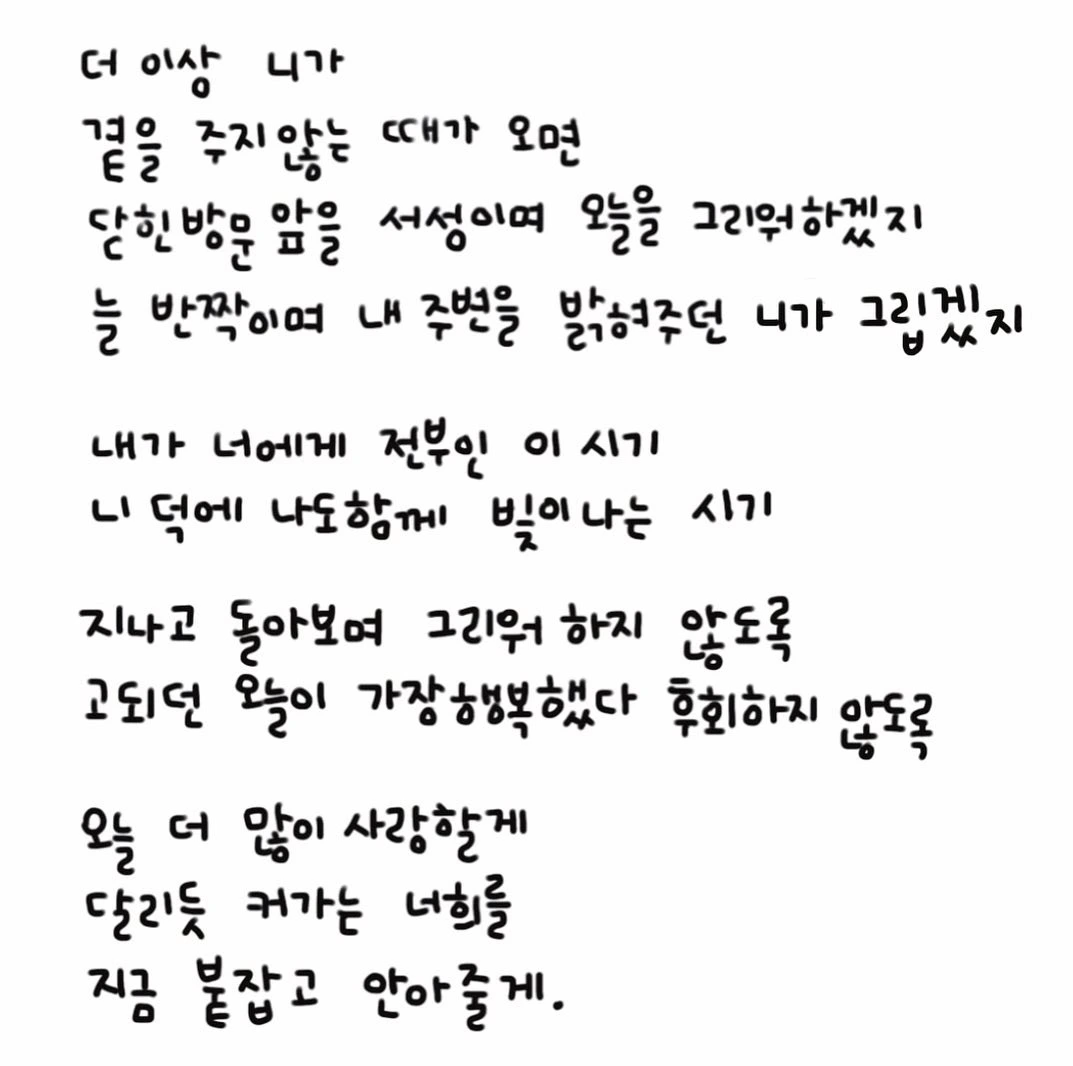 더 이상 니가
곁을 주지않는 때가 오면
닫힌방문앞을 서성이며 오늘을 그리워하겠지
늘 반짝이며 내 주변을 밝혀주던 니가 그립겠지
내가 너에게 전부인 이 시기
니 덕에 나도함께 빛이나는 시기
지나고 돌아보며 그리워 하지 않도록
고되던 오늘이 가장행복했다 후회하지 않도록
오늘 더 많이 사랑할게
달리듯 커가는 너희를
지금 붙잡고 안아줄게.